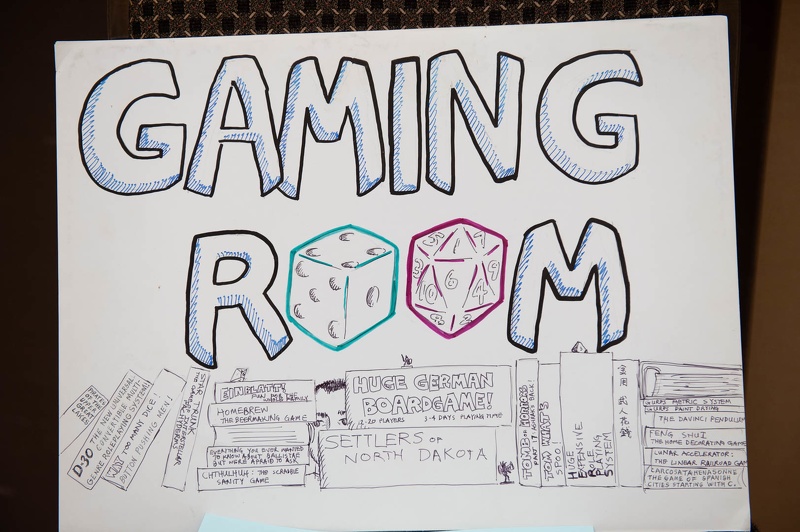 GAMING
ROOM
D-30
THE NEW UNIVERSAL
INVERTABLE MULTI
GENRE ROLEPLAYING SYSTEM!
TOO MANY DICE!
BUTTON PUSHING MEU!
EINBLATT!
HOMEBREW
THE BEERMAKING GAME
EVERYTHING YOU EVER WANTED
TO KNOW ABOUT BALLISTAE
BUT WERE AFRAID TO ASK
CHTHULHUH: THE SCRABBLE
SANITY GAME
HUGE GERMAN
BOARDGAME!
12-20 PLAYERS
3-4 DAYS PLAYING TIME
SETTLERS OF
NORTH DAKOTA
PART 17
HUGE
EXPENSIVE
ROLE
PLAYING
SYSTEM
GURPS METRIC SYSTEM
GURPS PAINT DRYING
THE DAVINCI PENDULUM
FENG SHUI
THE HOME DECORATING GAME
LUNAR ACCELERATOR:
THE LUNAR RAILROAD GAM
CARCOSATAHENASONNE
THE GAME OF SPANISH
CITIES STARTING WITH C.